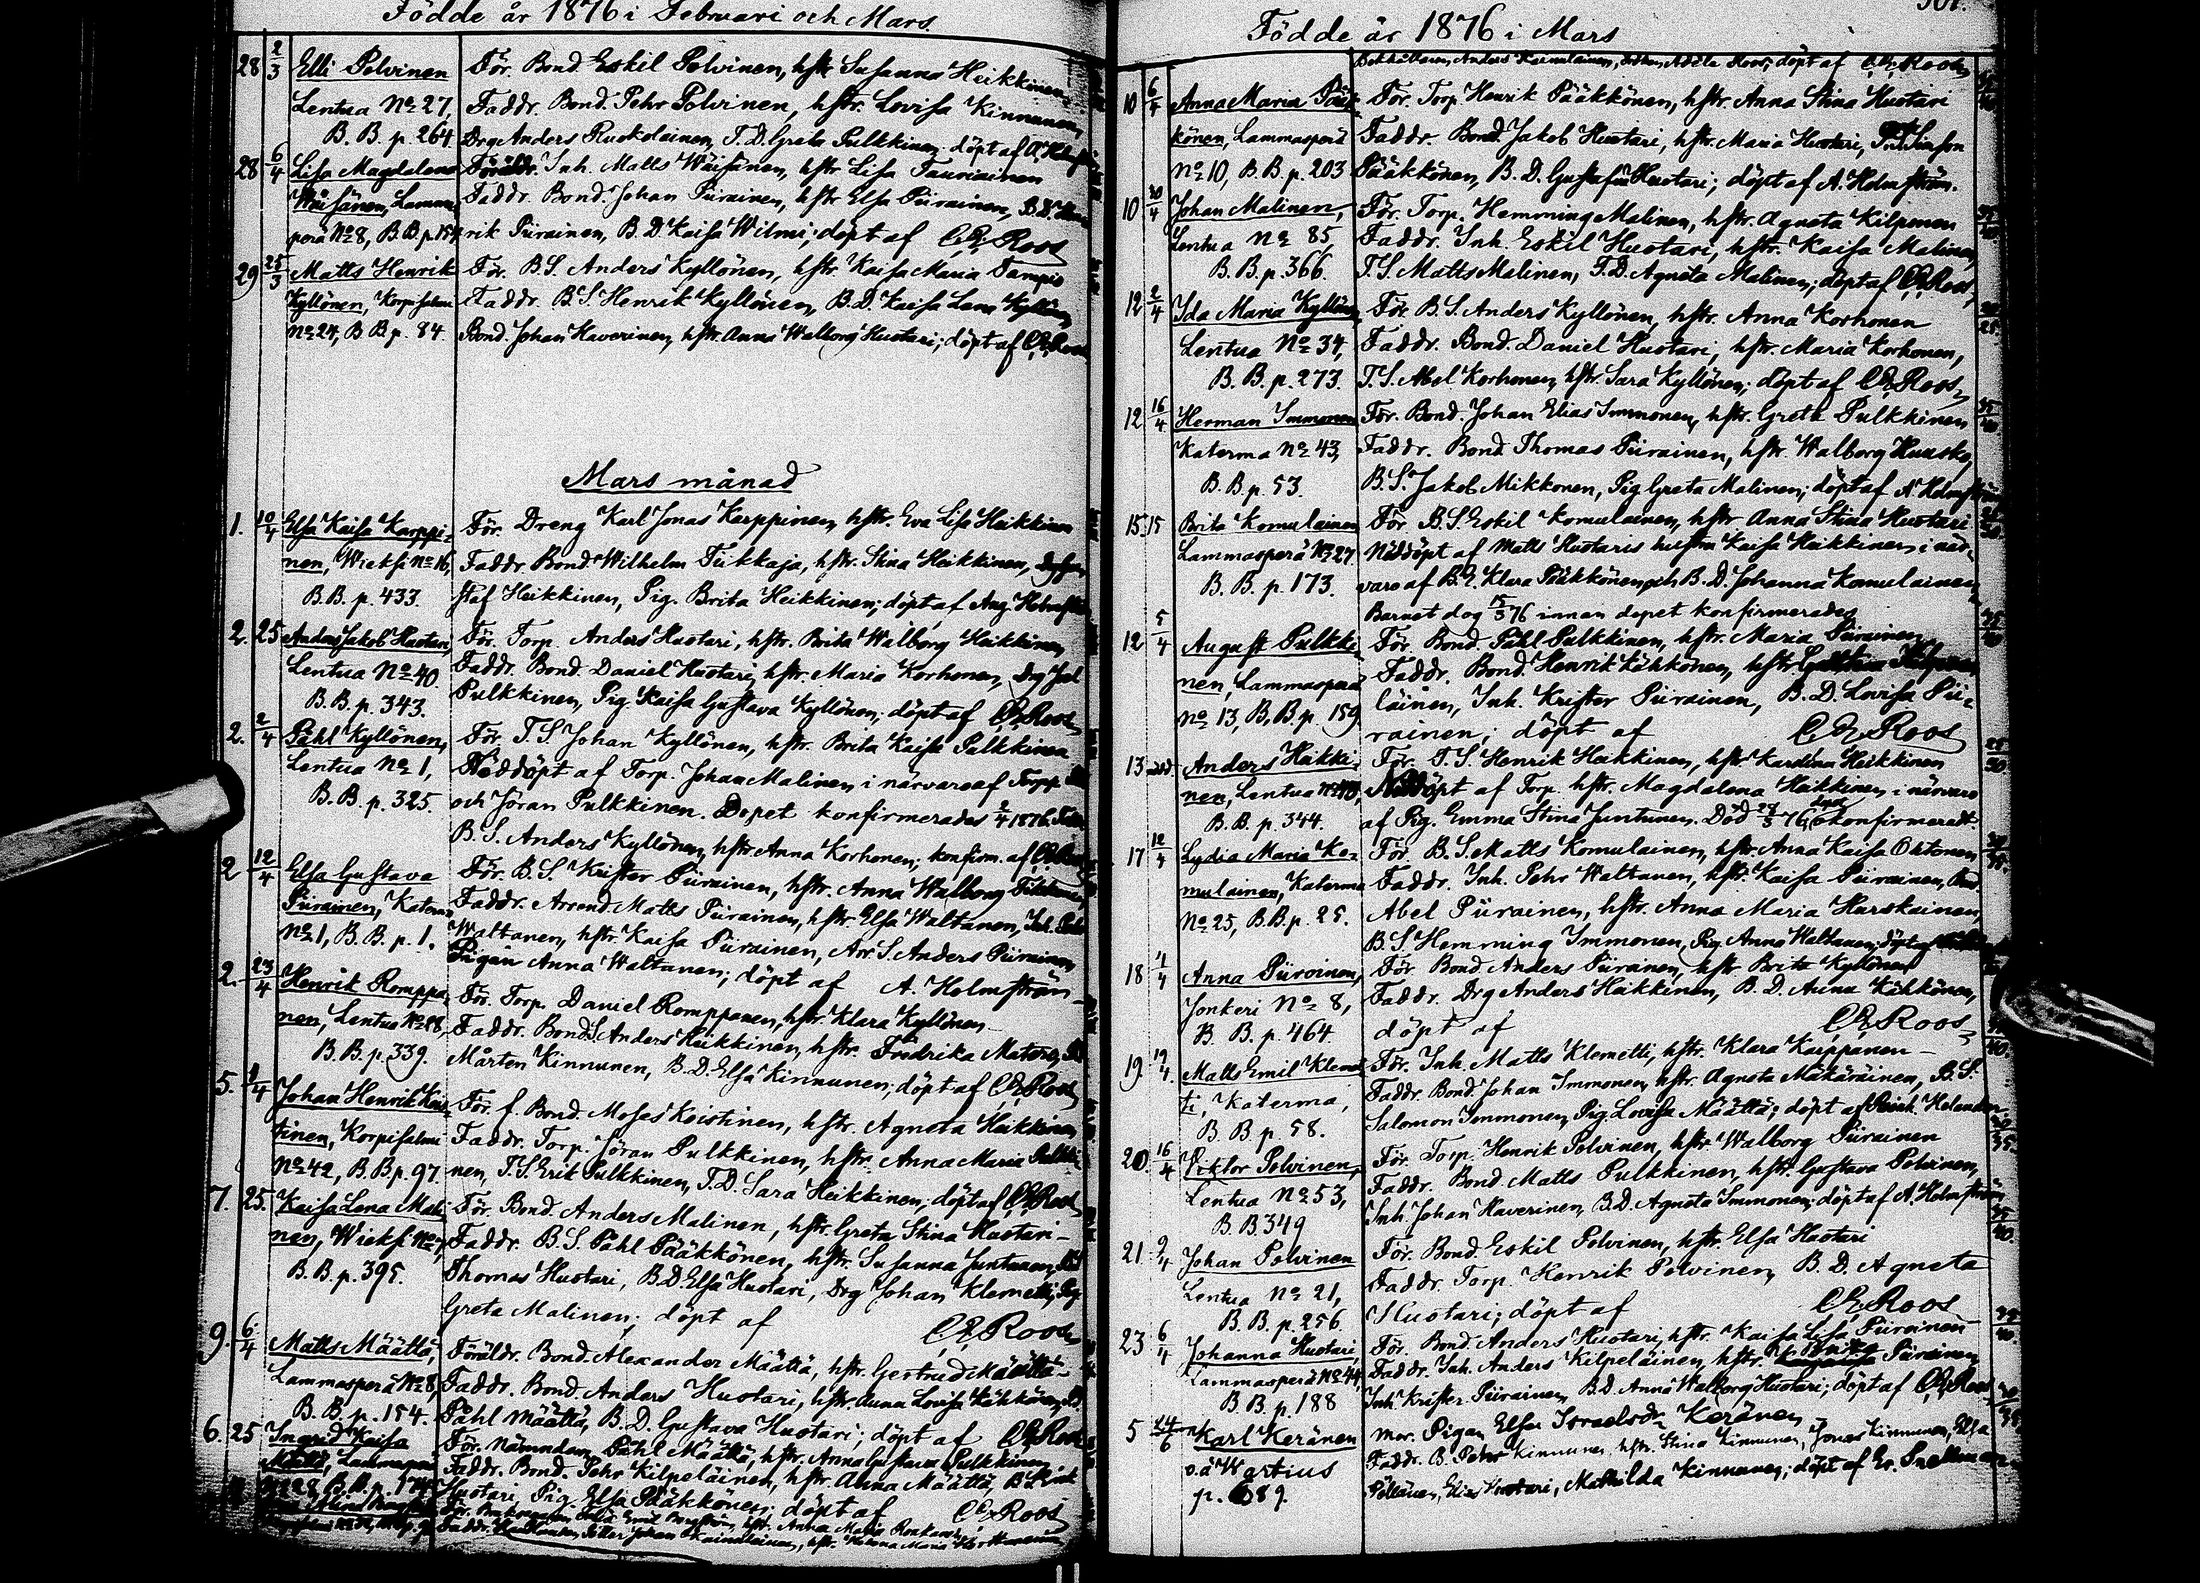 Födde år 1876 i Februari och Mars.
28 2/3 Elli Polvinen För. Bond. Eskil Polvinen, hstr Susanna Heikkinen
Lentua No 27, Faddr. Bond. Pehr Polvinen, hstr. Lovisa Kinnunen,
B. B. p. 264 Drg Anders Ruokolainen, T. D. Greta Pulkkinen döpt af
28 6/4 Lisa Magdalena Föräldr. Inh. Matts Wäisänen, hstr Lisa Tauriainen
Wäisänen, Lamma Faddr. Bond. Johan Piirainen, hstr Elsa Piirainen, B.D.
perä No 8, B B p. 154 rik Piirainen, B. D. Kaisa Wilmi; döpt af CE Roos
29 25/3 Matts Henrik För. B. S. Anders Kyllönen, hstr. Kaisa Maria Tampio
Kyllönen, Korpisalmi Faddr. B. S. Henrik Kyllönen, B. D. Kaisa Lena Kyllönen
No 24, B B p. 84. Bond. Johan Kaverinen, hstr. Anna Walborg Huotari; döpt af CE Roos
Mars månad
1. 10/4 Elsa Kaisa Karppi- För. Dreng Karl Jonas Karppinen, hstr. Eva Lisa Heikkinen
nen, Wieksi No 16, Faddr. Bond. Wilhelm Tikkaja, hstr. Stina Heikkinen,
B. B. p. 433. staf Heikkinen, Pig. Brita Heikkinen; döpt af Aug. Holmström
2. 25 Anders Jakob Huotari, För. Torp. Anders Huotari, hstr. Brita Walborg Heikkinen
Lentua No 40. Faddr. Bond. Daniel Huotari, hstr. Maria Korhonen, Drg
B. B. p. 343. Pulkkinen, Pig. Kaisa Gustava Kyllönen; döpt af CE Roos
2. 2/4 Påhl Kyllönen, För. T. S. Johan Kyllönen, hstr. Brita Kaisa Pulkkinen
Lentua No 1, Nöddöpt af Torp. Johan Malinen i närvaro af Torp
B. B. p. 325. och Jöran Pulkkinen. Dopet konfirmerades 2/4 1876.
B. S. Anders Kyllönen, hstr Anna Korhonen; konfirm. af CE Roos
2 12/4 Elsa Gustava För. B. S. Krister Piirainen, hstr. Anna Walborg
Piirainen, Katerma Faddr. Arrend. Matts Piirainen, hstr. Elsa Waltanen, Inh.
No 1, B. B. p. 1. Waltanen, hstr. Kaisa Piirainen, Arr. S. Anders Piirainen
Pigan Anna Waltanen; döpt af A. Holmström
2. 23/4 Henrik Romppa För. Torp. Daniel Romppanen, hstr. Klara Kyllönen
nen, Lentua No 28, Faddr. Bond. Anders Heikkinen, hstr. Fredrika Matero,
B. B. p. 339. Mårten Kinnunen, B. D. Elsa Kinnunen; döpt af CE Roos
5. /4 Johan Henrik Kois För. f. Bond. Moses Koistinen, hstr. Agneta Heikkinen
tinen, Korpisalmi Faddr. Torp. Jöran Pulkkinen, hstr. Anna Maria Pulkki-
No 42, B. B. p. 97. nen, T. S. Erik Pulkkinen, T. D. Sara Heikkinen; döpt af CE Roos
7. 25. Kaisa Lena Mali- För. Bond. Anders Malinen, hstr. Greta Stina Huotari
nen, Wieksi No Faddr. B. S. Påhl Pääkkönen, hstr. Susanna Juntunen,
B. B. p. 395. Thomas Huotari, B. D. Elsa Huotari, Drg Johan Klemetti, Pig
Greta Malinen; döpt af CE Roos
9. 6/4 Matts Määttä, Föräldr. Bond. Alexander Määttä, hstr. Gertrud Määttä
Lammasperä No 8, Faddr. Bond. Anders Huotari, hstr. Anna Lovisa Kähkönen,
B. B. p. 154. Påhl Määttä, B. D. Gustava Huotari; döpt af CE Roos
6. 25 Ingrid Kaisa För. Nämndem. Påhl Määttä, hstr. Anna Gustava Pulkkinen
Määttä, Faddr. Bond. Pehr Kilpeläinen, hstr. Anna Määttä,
No 28, B. B. p. Huotari, Pig. Elsa Pääkkönen; döpt af CE Roos
Faddr. hstr.
Födde år 1876 i Mars
Anders Komulainen, Adèle Roos; döpt af CE Roos
10 6/4 Anna Maria Pääk För. Torp. Henrik Pääkkönen, hstr. Anna Stina Huotari
könen, Lammasperä Faddr. Bond. Jakob Huotari, hstr. Maria Huotari,
No 10, B. B. p. 203 Pääkkönen, B. D. Gustafva Huotari; döpt af A. Holmström.
10 30/4 Johan Malinen, För. Torp. Hemming Malinen, hstr. Agneta Kilpinen
Lentua No 85, Faddr. Inh. Eskil Huotari, hstr. Kaisa Malinen,
B. B. p. 366. T. S. Matts Malinen, T. D. Agneta Malinen; döpt af CE Roos
12 2/4 Ida Maria Kyllönen För. B. S. Anders Kyllönen, hstr. Anna Korhonen
Lentua No 34, Faddr. Bond. Daniel Huotari, hstr. Maria Korhonen,
B. B. p. 273. T. S. Abel Korhonen, hstr. Sara Kyllönen; döpt af CE Roos
12 16/4 Herman Immonen För. Bond. Johan Elias Immonen, hstr. Greta Pulkkinen
Katerma No 43, Faddr. Bond Thomas Piirainen, hstr. Walborg Huusko,
B. B. p. 53. B. S. Jakob Mikkonen, Pig Greta Malinen; döpt af A. Holmström
15. 15 Brita Komulainen För. B. S. Eskil Komulainen, hstr. Anna Stina Huotari
Lammasperä No 27. Nöddöpt af Matts Huotaris hustru Kaisa Heikkinen i när-
B. B. p. 173. varo af B. E. Klara Pääkkönen och B. D. Johanna Komulainen,
Barnet dog 15/3 76 innan dopet konfirmerades
12 5/4 August Pulkki- För. Bond. Påhl Pulkkinen, hstr. Maria Piirainen
nen, Lammasperä Faddr. Bond. Henrik Kähkönen, hstr
No 13, B. B. p. 159 läinen, Inh. Krister Piirainen, B. D. Lovisa Pii-
rainen; döpt af CE Roos
13 Anders Heikki- För. T. S. Henrik Heikkinen, hstr Kardina Heikkinen
nen, Lentua Nöddöpt af Torp. hstr. Magdalena Heikkinen i närvaro
B. B. p. 344. af Pig. Emma Stina Juntunen. Död 28/3 76, okonfirmeradt.
17 12/4 Lydia Maria Ko- För. B. S. Matts Komulainen, hstr. Anna Kaisa Ohtonen
mulainen, Katerma Faddr. Inh. Pehr Waltanen, hstr. Kaisa Piirainen,
No 25, B. B. p. 25. Abel Piirainen, hstr. Anna Maria Hurskainen,
B. S. Hemming Immonen, Pig Anna Waltanen; döpt af
18 4/4 Anna Piirainen, För. Bond. Anders Piirainen, hstr Brita Kyllönen
Jonkeri No 8, Faddr. Drg Anders Heikkinen, B. D. Anna Kähkönen,
B. B. p. 464. döpt af CE Roos
19. 19/4 Matts Emil Klemet- För. Inh. Matts Klemetti, hstr. Klara Karppanen
ti, Katerma, Faddr. Bond. Johan Immonen, hstr. Agneta Mäkäräinen, B. S.
B. B. p. 58. Salomon Immonen, Pig. Lovisa Määttä; döpt af Helander.
20. 16/4 Viktor Polvinen, För. Torp. Henrik Polvinen, hstr. Walborg Piirainen
Lentua No 53, Faddr. Bond. Matts Pulkkinen, hstr. Gustava Polvinen,
B. B 349 Inh. Johan Kaverinen, B. D. Agneta Immonen; döpt af A. Holmström
21. 9/4 Johan Polvinen För. Bond. Eskil Polvinen, hstr. Elsa Huotari
Lentua No 21, Faddr. Torp. Henrik Polvinen, B. D. Agneta
B. B. p. 256. Huotari; döpt af CE Roos
23 6/4 Johanna Huotari, För. Bond. Anders Huotari, hstr. Kaisa Lisa Piirainen
Lammasperä No 44, Faddr. Inh. Anders Kilpeläinen, hstr. Piirainen,
B B p. 188 Inh. Krister Piirainen, B. D. Anna Walborg Huotari; döpt af CE Roos
5 /6 Karl Keränen mor. Pigan Elsa Israelsdr Keränen
o. ä Wartius Faddr. B. Pehr Kinnunen, hstr. Stina Kinnunen, Jonas Kinnunen, Elsa
p. 689. Pöllänen, Elias Huotari, Mathilda Kinnunen; döpt af Er. Snellman